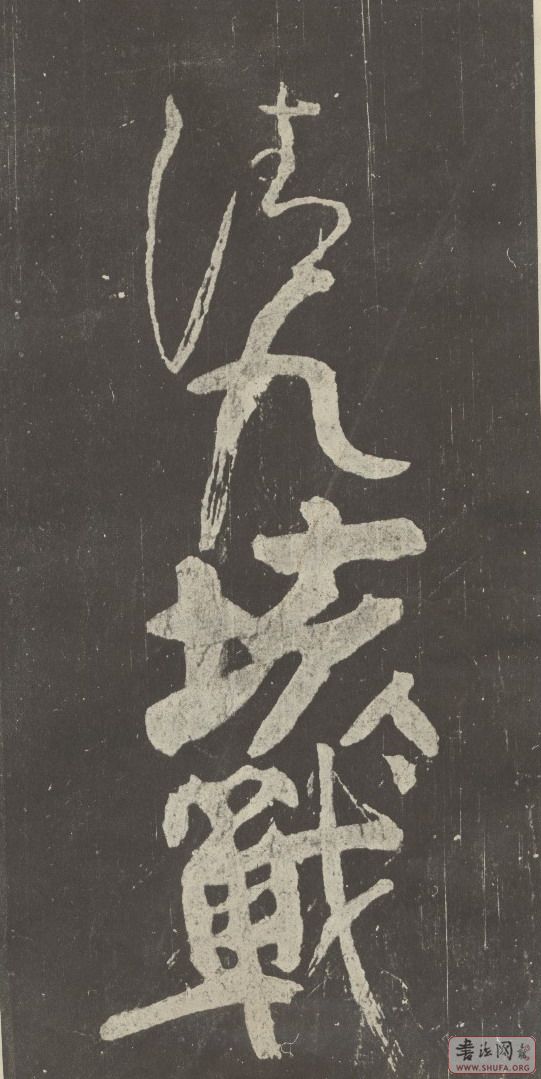 清九垓戰
書法网
WWW.SHUFA.ORG